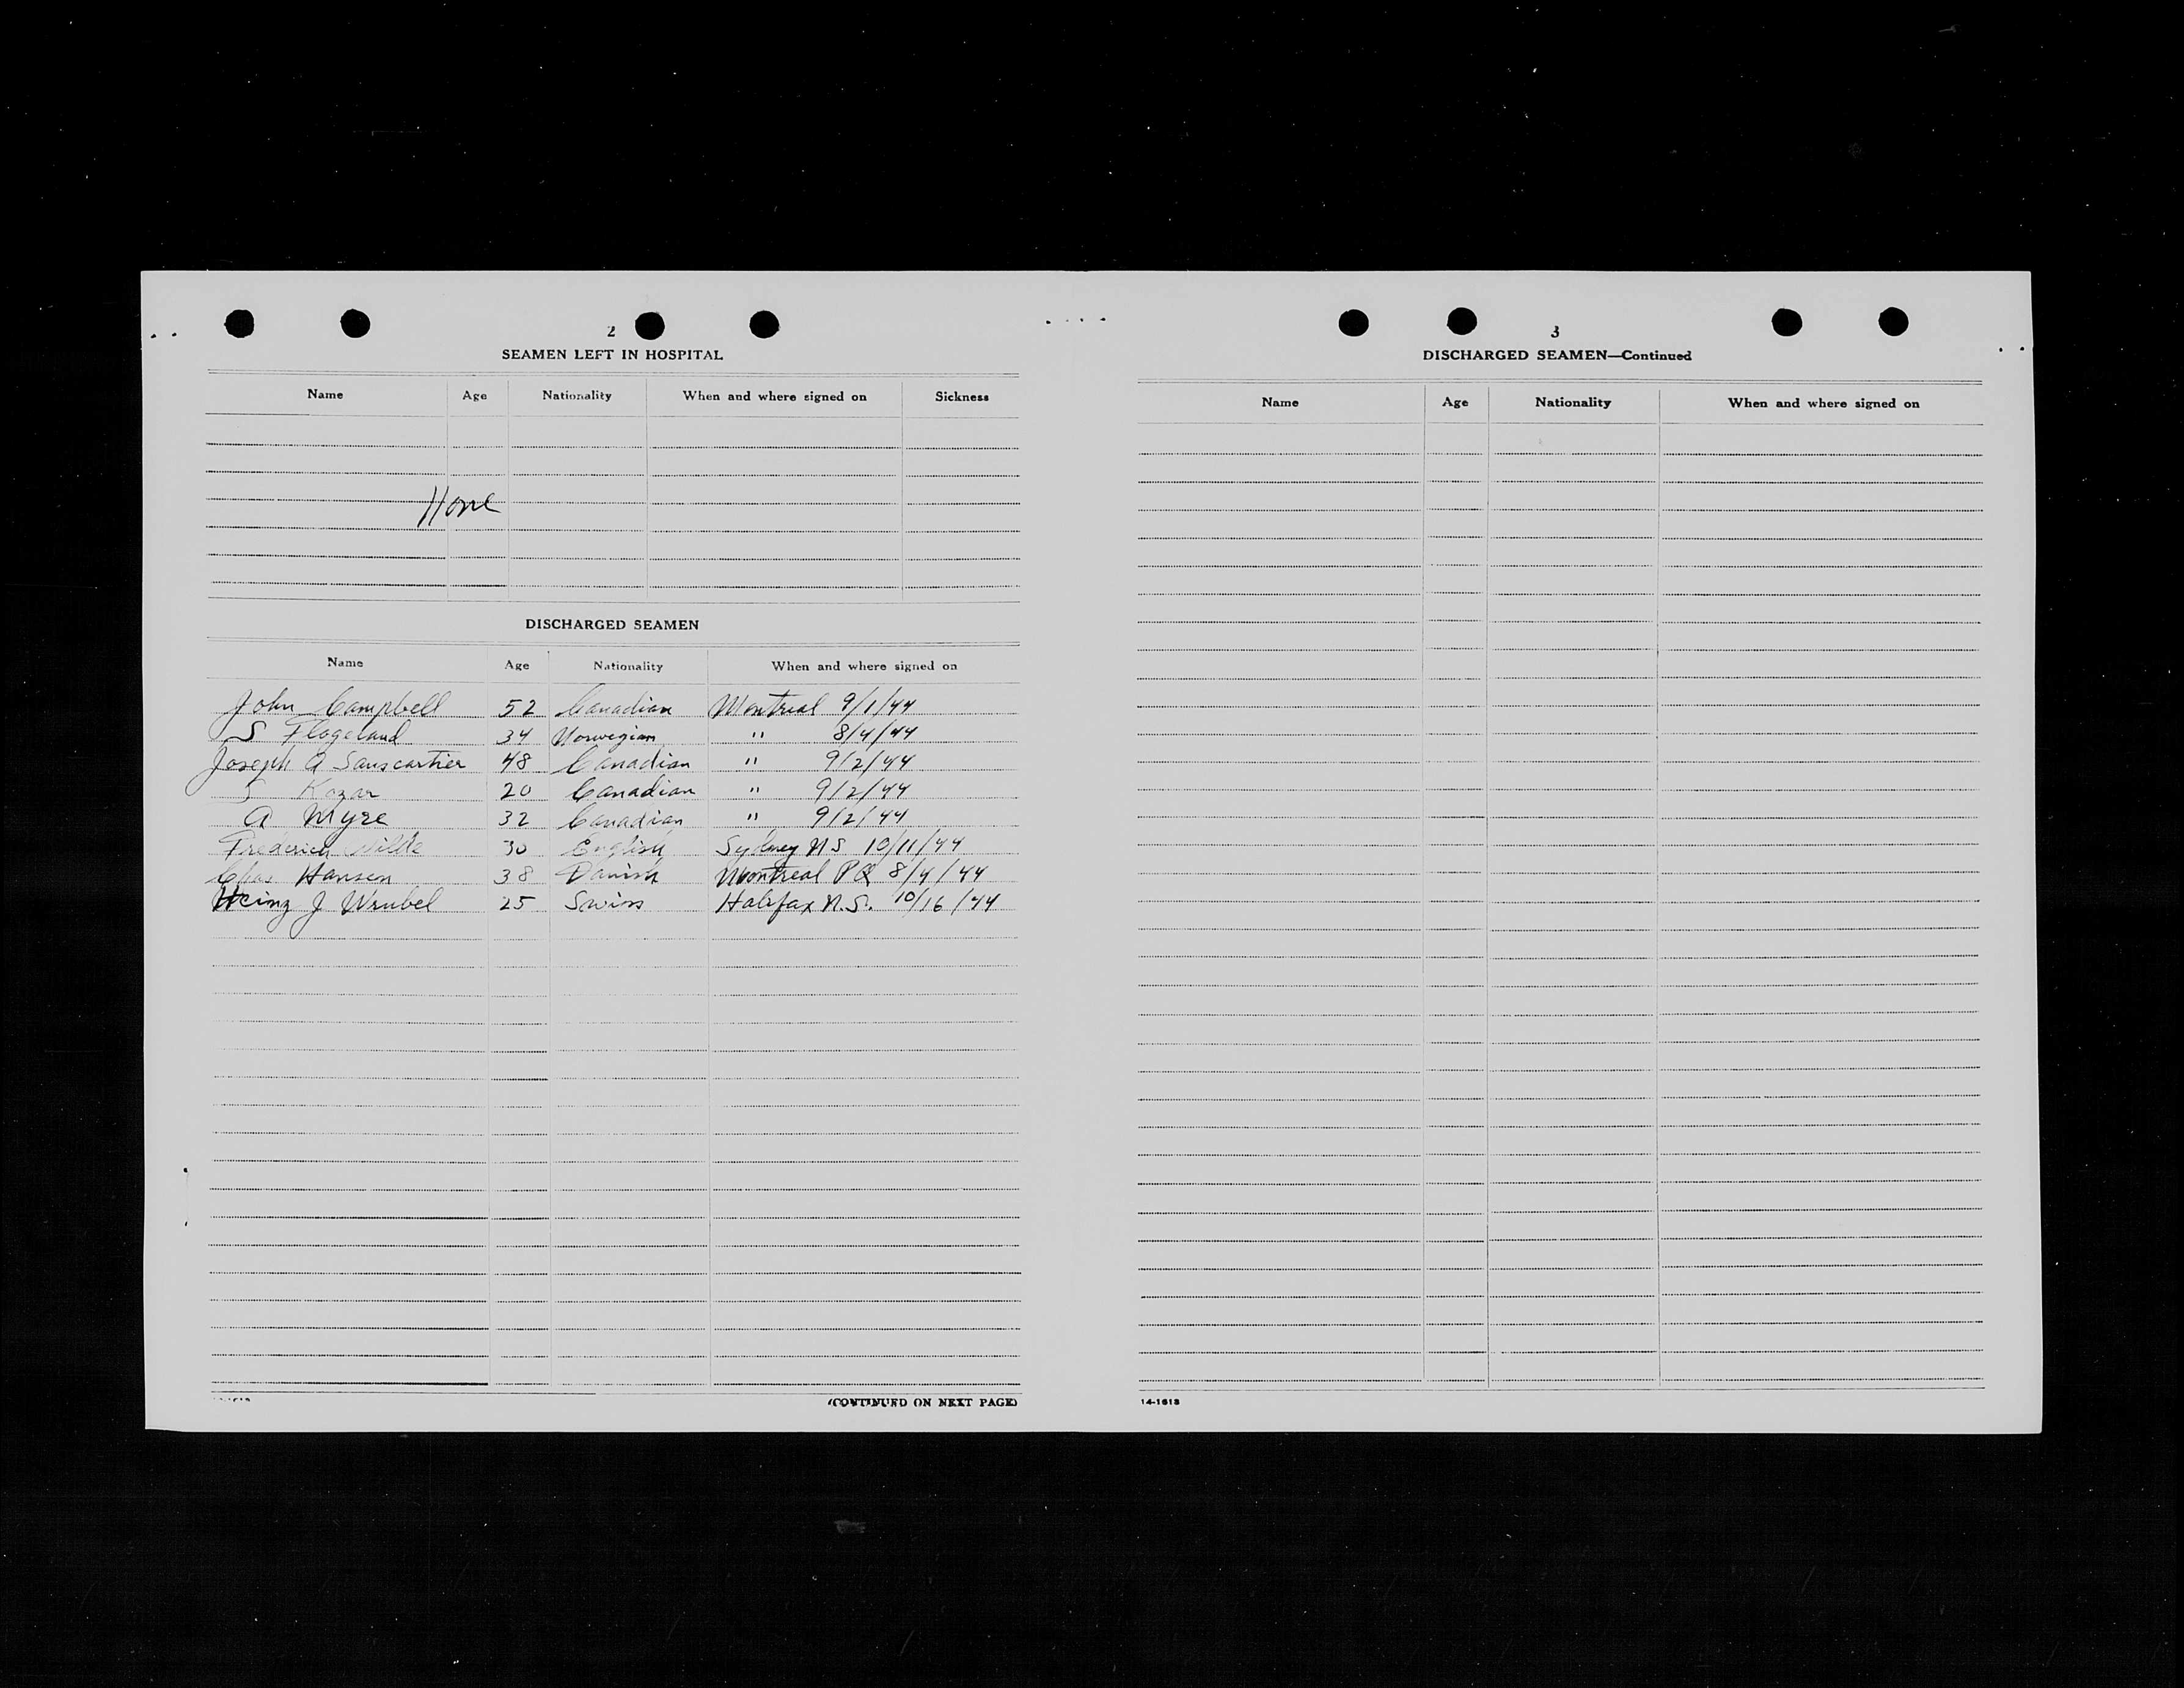 2
SEAMEN LEFT IN HOSPITAL
Name Age Nationality When and where signed on Sickness
None
DISCHARGED SEAMEN
Name Age Nationality When and where signed on
John Campbell 52 Canadian Montreal 9/1/44
S Flogeland 34 Norwegian " 8/4/44
Joseph A Sanscartier 48 Canadian " 9/2/44
Kozar 20 Canadian " 9/2/44
A Myre 32 Canadian " 9/2/44
Frederick Wilde 30 English Sydney NS 10/11/44
Chas Hansen 38 Danish Montreal PQ 8/4/44
Heinz J Wrubel 25 Swiss Halifax N.S. 10/16/44
(CONTINUED ON NEXT PAGE)
3
DISCHARGED SEAMEN—Continued
Name Age Nationality When and where signed on
14-1618